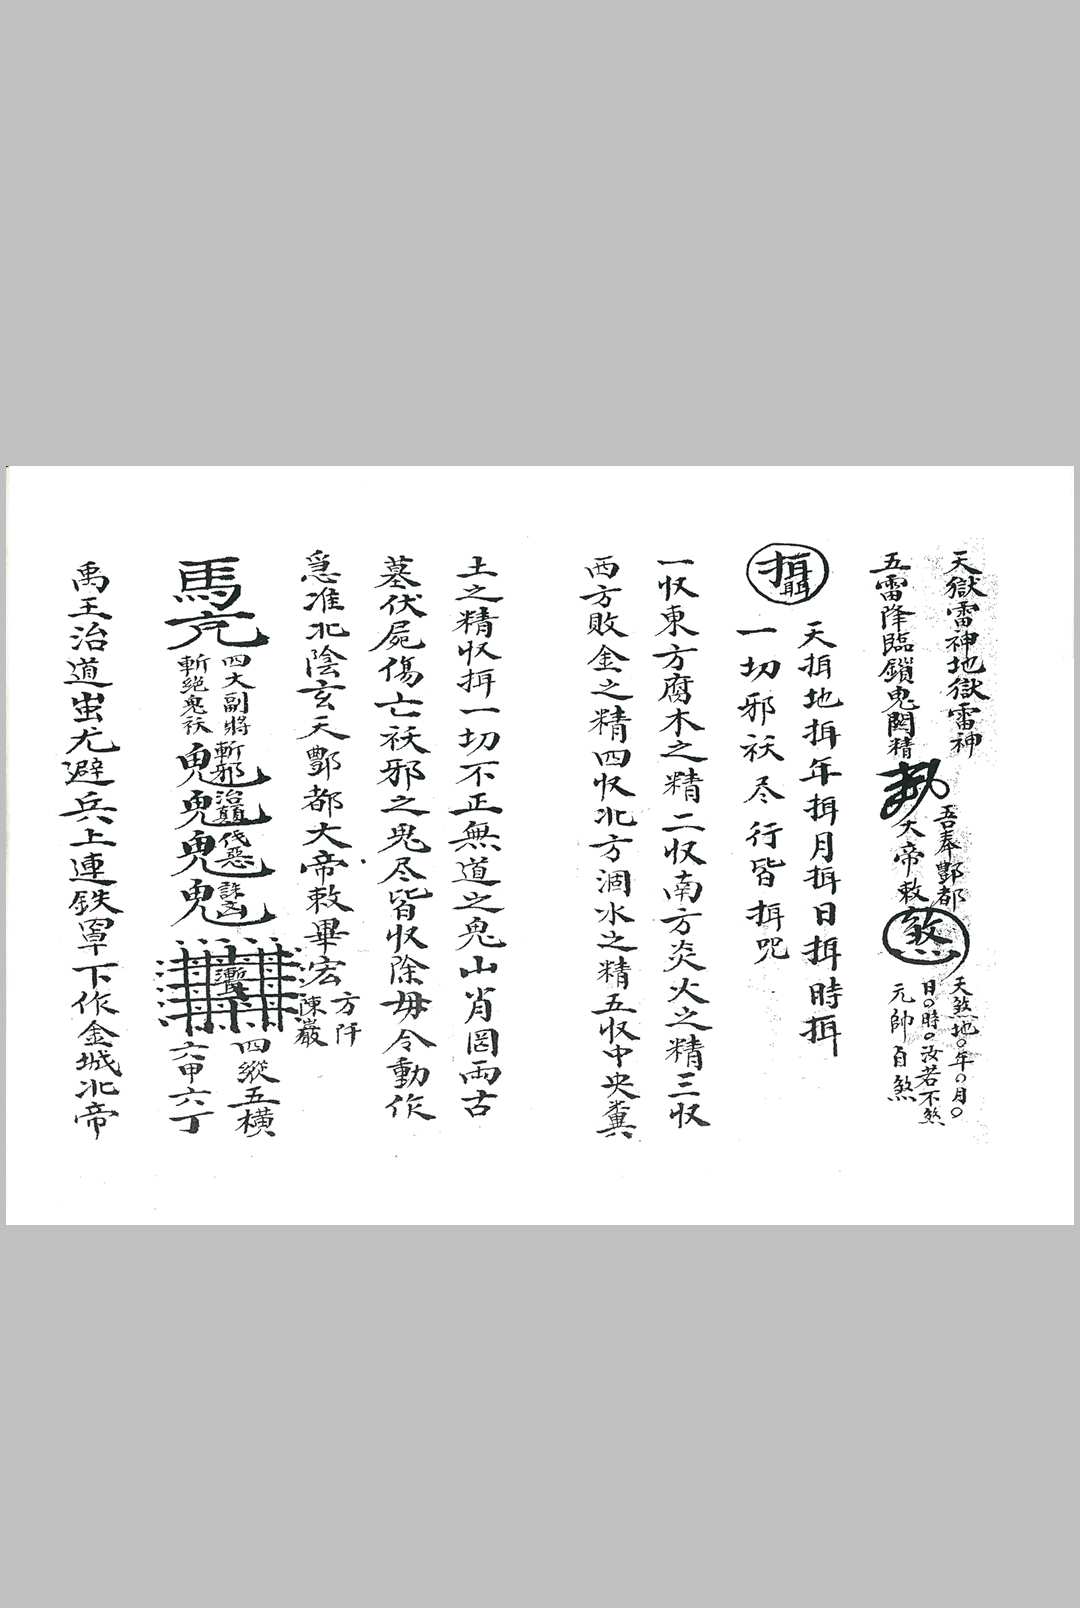 天獄雷神地獄雷神
五雷降臨鎖鬼関精
吾奉酆都
大帝敕
煞
天煞地○年○月○
日○時○汝若不煞
元帥自煞
攝
天挕地挕年挕月挕日挕時挕
一切邪祆尽行皆挕咒
一収東方腐木之精二収南方炎火之精三収
西方敗金之精四収北方涸水之精五収中央糞
土之精収挕一切不正無道之鬼山肖罔両古
墓伏屍傷亡祆邪之鬼尽皆収除毋令動作
急准北陰玄天酆都大帝敕畢宏
方仟
陳巖
馬充
四大副將
斬絕鬼祆
鬼鬼鬼鬼
斬邪
治顛
伐惡
四縱五橫
六甲六丁
禹王治道蚩尤避兵上連鉄罩下作金城北帝